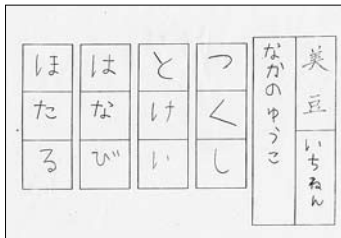 美豆 いちねん
なかの ゆうこ
つくし
とけい
はなび
ほたる